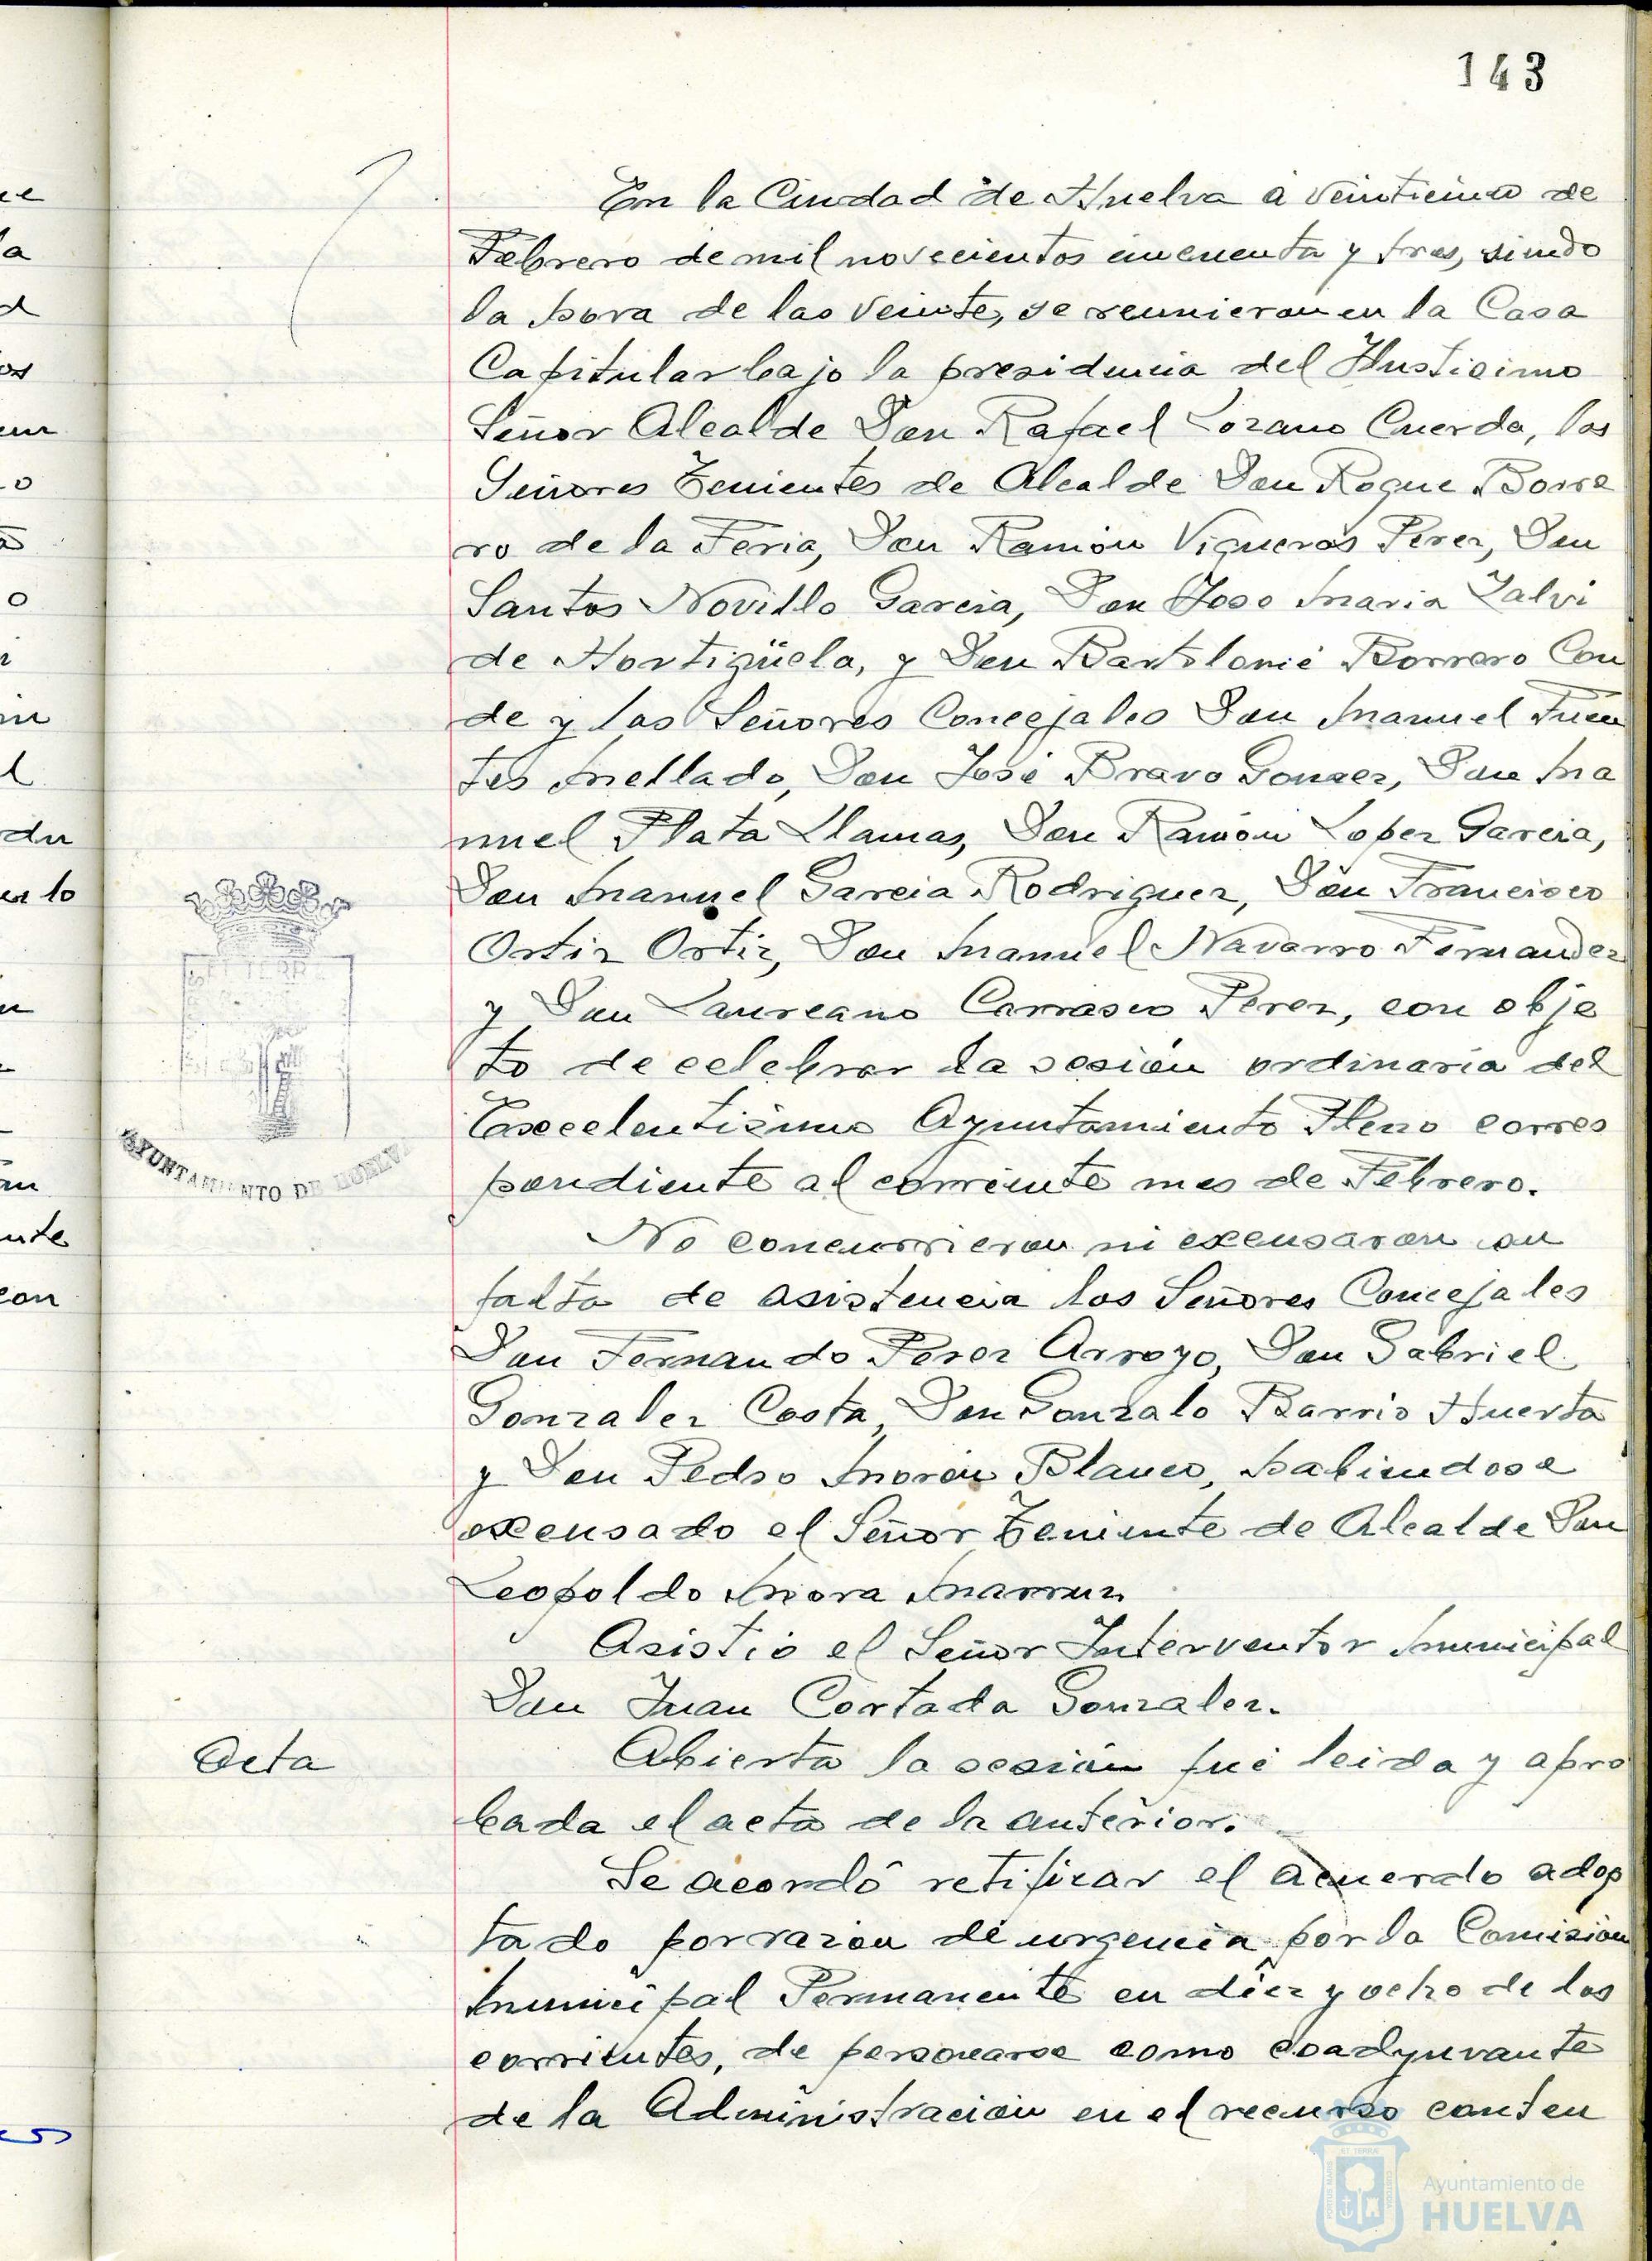 143
En la Ciudad de Huelva a veinticinco de
Febrero de mil novecientos cincuenta y tres, siendo
la hora de las veinte, se reunieron en la Casa
Capitular bajo la presidencia del Ilustisimo
Señor Alcalde Don Rafael Lozano Cuerda, los
Señores Tenientes de Alcalde Don Roque Borre
ro de la Feria, Don Ramón Vigueras Perez, Don
Santos Novillo Garcia, Don Jose Maria Zalvi
de Hortigüela, y Don Bartolomé Borrero Con
de y los Señores Concejales Don Manuel Fuen
tes Mellado, Don José Bravo Gomez, Don Ma
nuel Plata Llamas, Don Ramón Lopez Garcia,
Don Manuel Garcia Rodriguez, Don Francisco
Ortiz Ortiz, Don Manuel Navarro Fernandez
y Don Laureano Carrasco Perez, con obje
to de celebrar la sesión ordinaria del
Excelentisimo Ayuntamiento Pleno corres
pondiente al corriente mes de Febrero.
AYUNTAMIENTO DE HUELVA
No concurrieron ni excusaron su
falta de asistencia los Señores Concejales
Don Fernando Perez Arroyo, Don Gabriel
Gonzalez Costa, Don Gonzalo Barrio Huerta
y Don Pedro Morón Blanco, habiendose
excusado el Señor Teniente de Alcalde Don
Leopoldo Mora
Asistió el Señor Interventor Municipal
Don Juan Cortada Gonzalez.
Acta
Abierta la sesión fué leida y apro
bada el acta de la anterior.
Se acordó retificar el acuerdo adop
tado por razon de urgencia por la Comisión
Municipal Permanente en diez y ocho de los
corrientes, de personarse como coadyuvante
de la Administración en el recurso conten
Ayuntamiento de
HUELVA